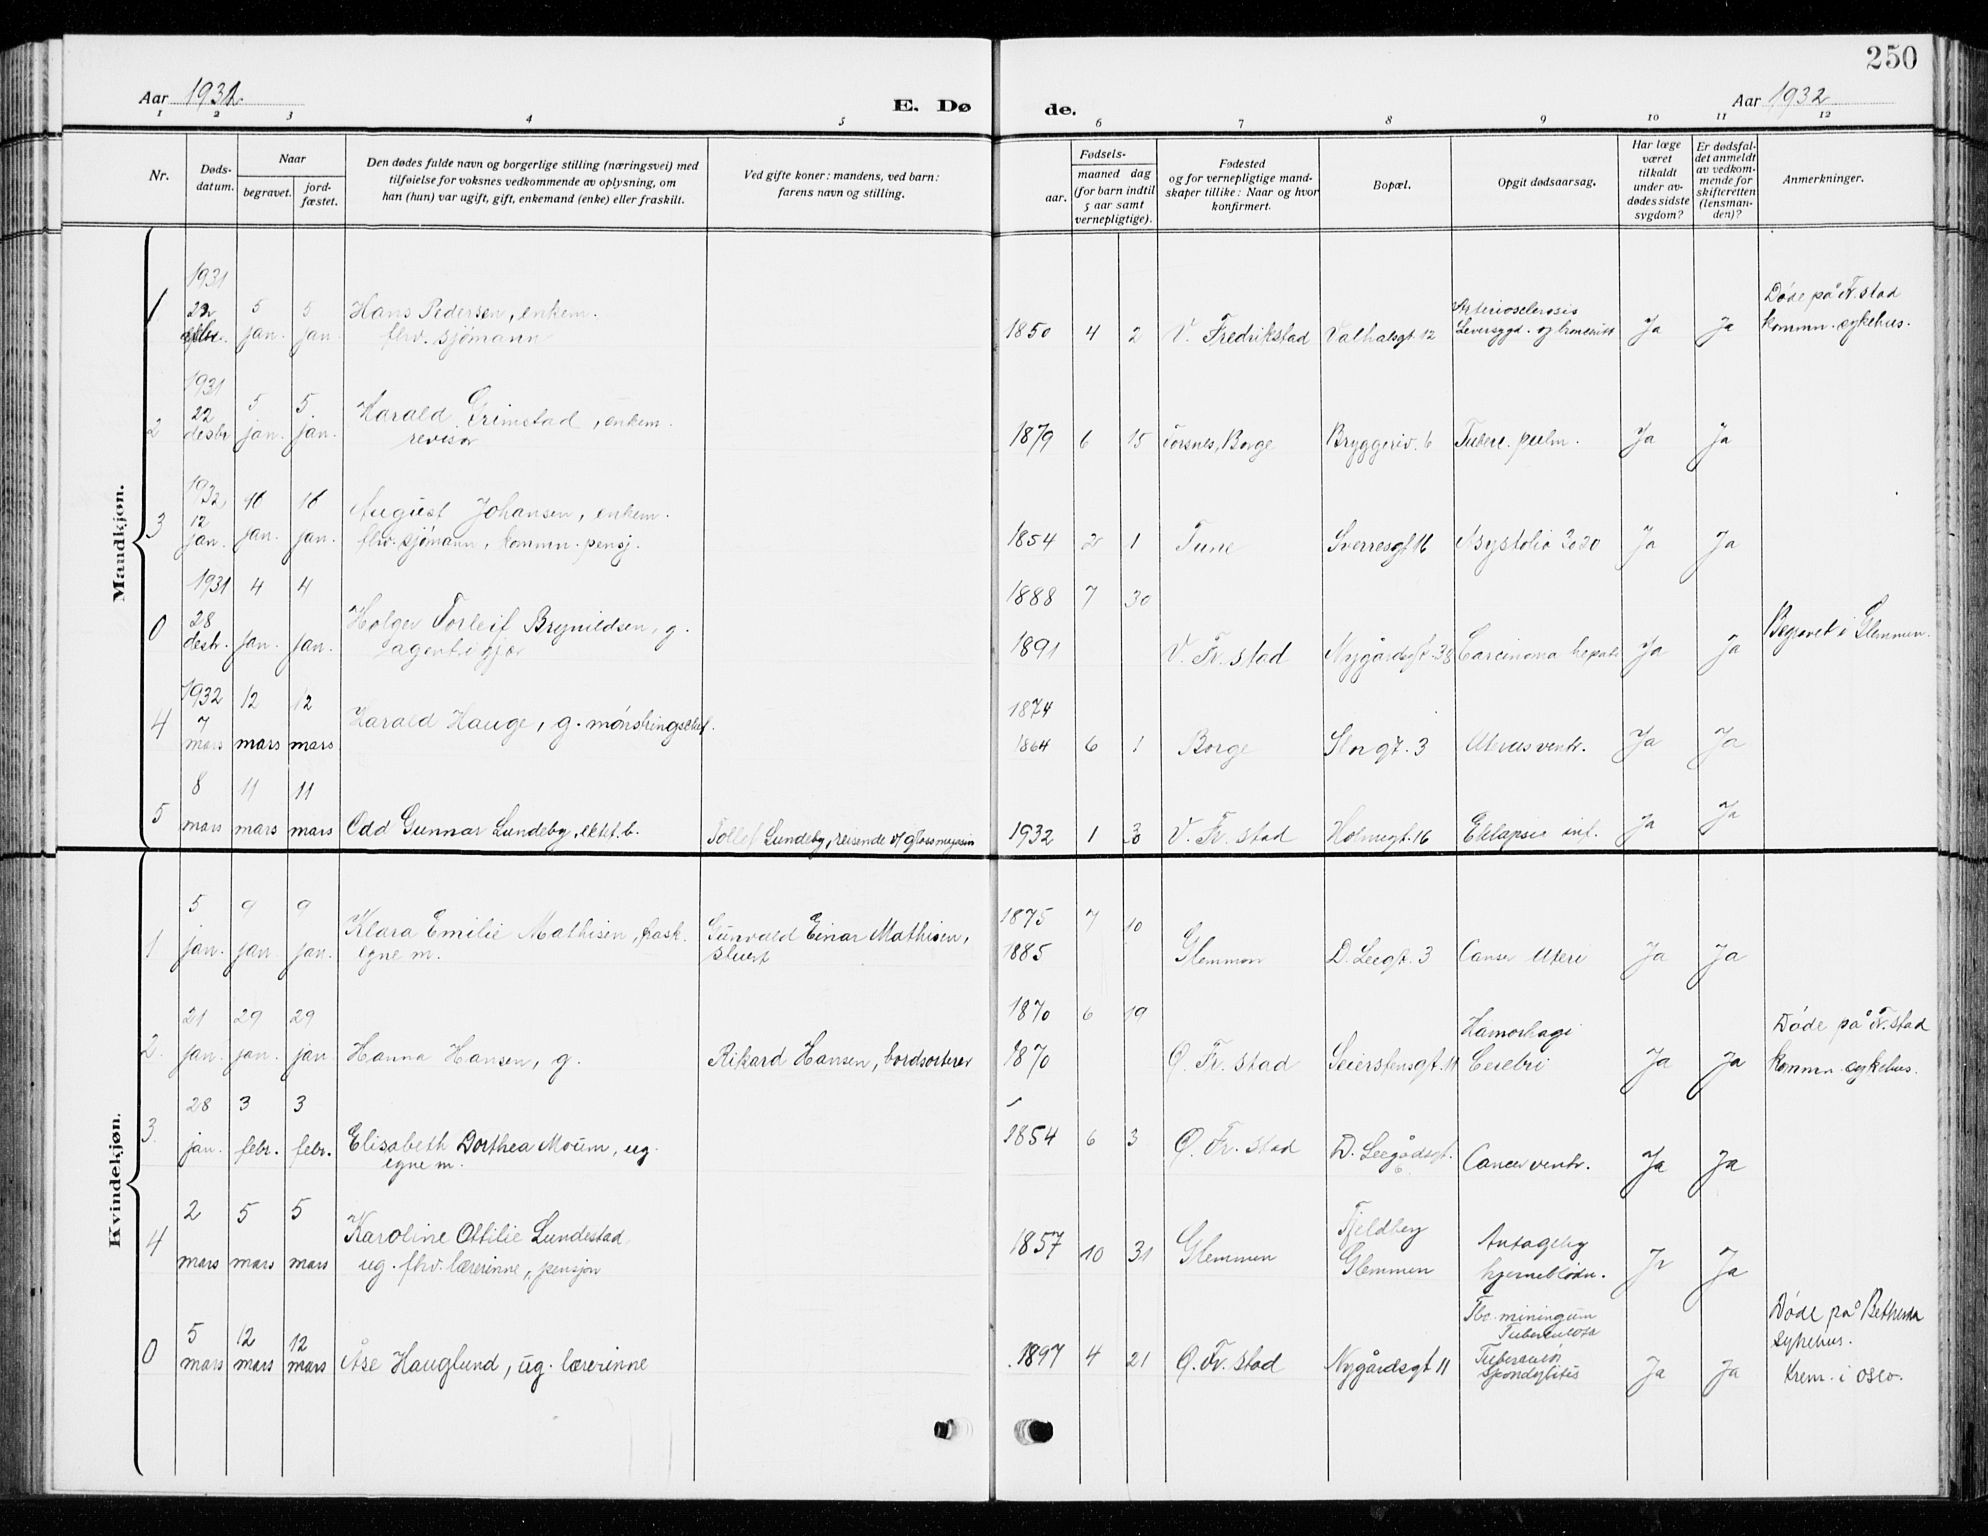 250
Aar 1932
E. Dø
de.
Aar 1932
1 2 3 4 5 6 7 8 9 10 11 12
Nr.
Døds-
datum.
Naar
begravet.
jord-
fæstet.
Den dødes fulde navn og borgerlige stilling (næringsvei) med
tilføielse for voksnes vedkommende av oplysning, om
han (hun) var ugift, gift, enkemand (enke) eller fraskilt.
Ved gifte koner: mandens, ved barn:
farens navn og stilling.
Fødsels-
aar.
maaned dag
(for barn indtil
5 aar samt
vernepligtige).
Fødested
og for vernepligtige mand-
skaper tillike: Naar og hvor
konfirmert.
Bopæl.
Opgit dødsaarsag.
Har læge
været
tilkaldt
under av-
dødes sidste
sygdom?
Er dødsfal-
det anmeldt
av vedkom-
mende for
skifteretten
(lensman-
den)?
Anmerkninger.
Mandkjøn.
1931
1 5 jan. 5 jan. Hans Pedersen, enkem.
fhv. sjømann
1850 4 2 V. Fredrikstad Valhalsgt. 12 Arteriosclerosis
Leversygd. og Ja Ja
Døde på Fr.stad
kommn. sykehus.
1931
2 22 desbr 5 jan. 5. jan. Harald Grimstad, enkem.
revisor
1879 6 15 Torsnes, Borge Bryggeriv. 6 Tuberc. pulm. Ja Ja
1932
3 12 jan. 16 jan. 16 jan. August Johansen, enkem.
fhv. sjømann, kommn. pensj.
1854 2 1 Tune Sverresgt 16 Asystolia Ja Ja
1931
0 28 desbr. 4 jan. 4 jan. Holger Torleif Brynildsen, g.
1888 7 30
1891 V. Fr. stad Nygårdsgt. 38 Carcinoma hepat. Ja Ja
Begravet i Glemmen.
1932
4 7 mars 12 mars 12 mars Harald Hauge, g. mønstringschef.
1874
1864 6 1 Borge Storgt. 3 ventr. Ja Ja
5 8 mars 11 mars 11 mars Odd Gunnar Lundeby, ektef. b. Tollef Lundeby, reisende v/ glassmagasin
1932 1 30 V. Fr. stad Holmegt. 16 inf. Ja Ja
Kvindekjøn.
1 5 jan. 9 jan. 9 jan. Klara Emilie Mathisen, frask.
egne m.
Gunvald Einar Mathisen,
stuert
1875 7 10
1885 Glemmen D. Leegt. 3 Canser Uteri Ja Ja
2. 21 jan. 29 jan. 29 jan. Hanna Hansen, g. Rikard Hansen, bordsorterer
1870 6 19
1870 Ø. Fr. stad Seierstensgt. 11 Hamorhagi
Cerebri Ja Ja
Døde på Fr.stad
kommn. sykehus.
3. 28 jan. 3 febr. 3 febr. Elisabeth Dorthea Moum, ug.
egne m.
1854 6 3 Ø. Fr. stad D. Leegådsgt.
6 Cancer ventr. Ja Ja
4 2 mars 5 mars 5 mars Karoline Ottilie Lundestad
ug. fhv. lærerinne, pensjon
1857 10 31 Glemmen Fjeldberg
Glemmen Antagelig
hjerneblødn. Ja Ja
0 5 mars 12 mars 12 mars Åse Hauglund, ug. lærerinne
1897 4 21 Ø. Fr. stad Nygårdsgt 11 Tbc. miningum
Tuberculosa
spondylitis Ja Ja
Døde på Bethesda
sykehus.
Krem. i Oslo.